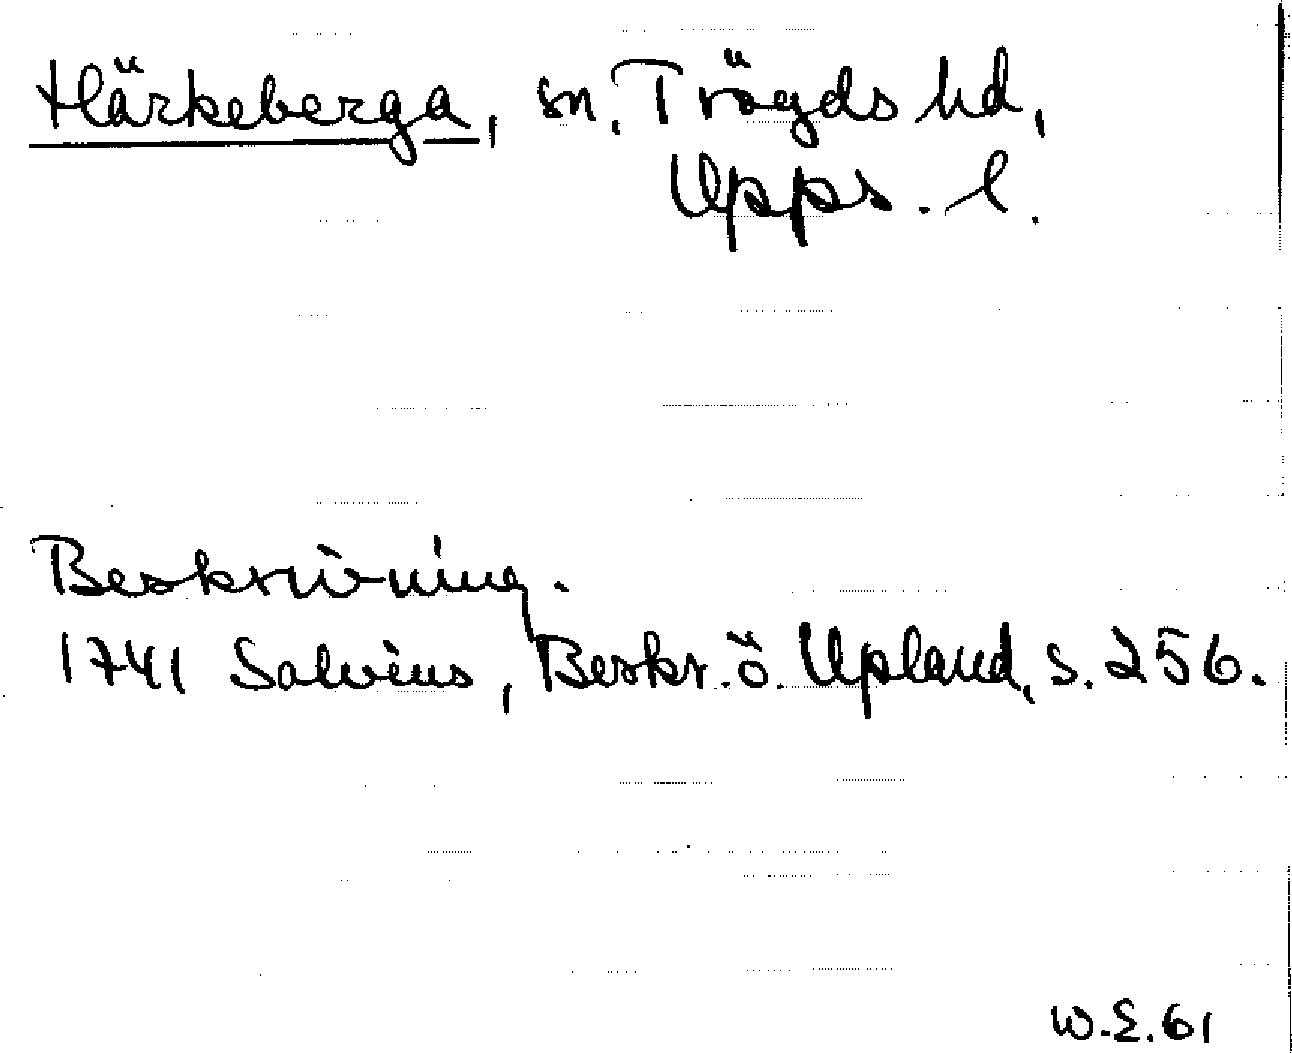 Härkeberga, sn, Trögds hd,
Upps. l.
Beskrivning.
1741 Salvius, Beskr. ö. Upland, s. 256.
W.E. 61